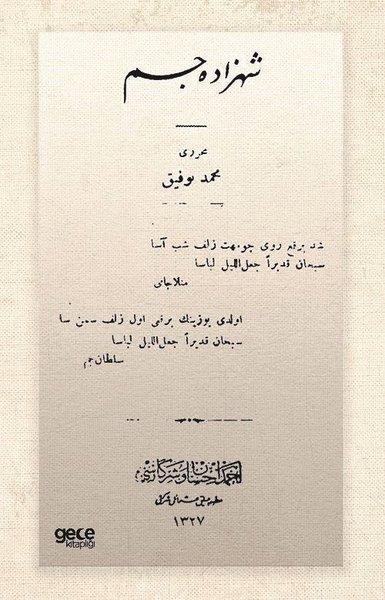 شهزاده جم
محرری
محمد توفیق
شد برقع روی چو مهت زلف شب آسا
سبحان قدیراً جعل اللیل لباسا
منلا جامی
اولدی یوزینك برقعی اول زلف سمن سا
سبحان قدیراً جعل اللیل لباسا
سلطان جم
احمد احسان و شرکاسی
١٣٢٧
gece
kitaplığı